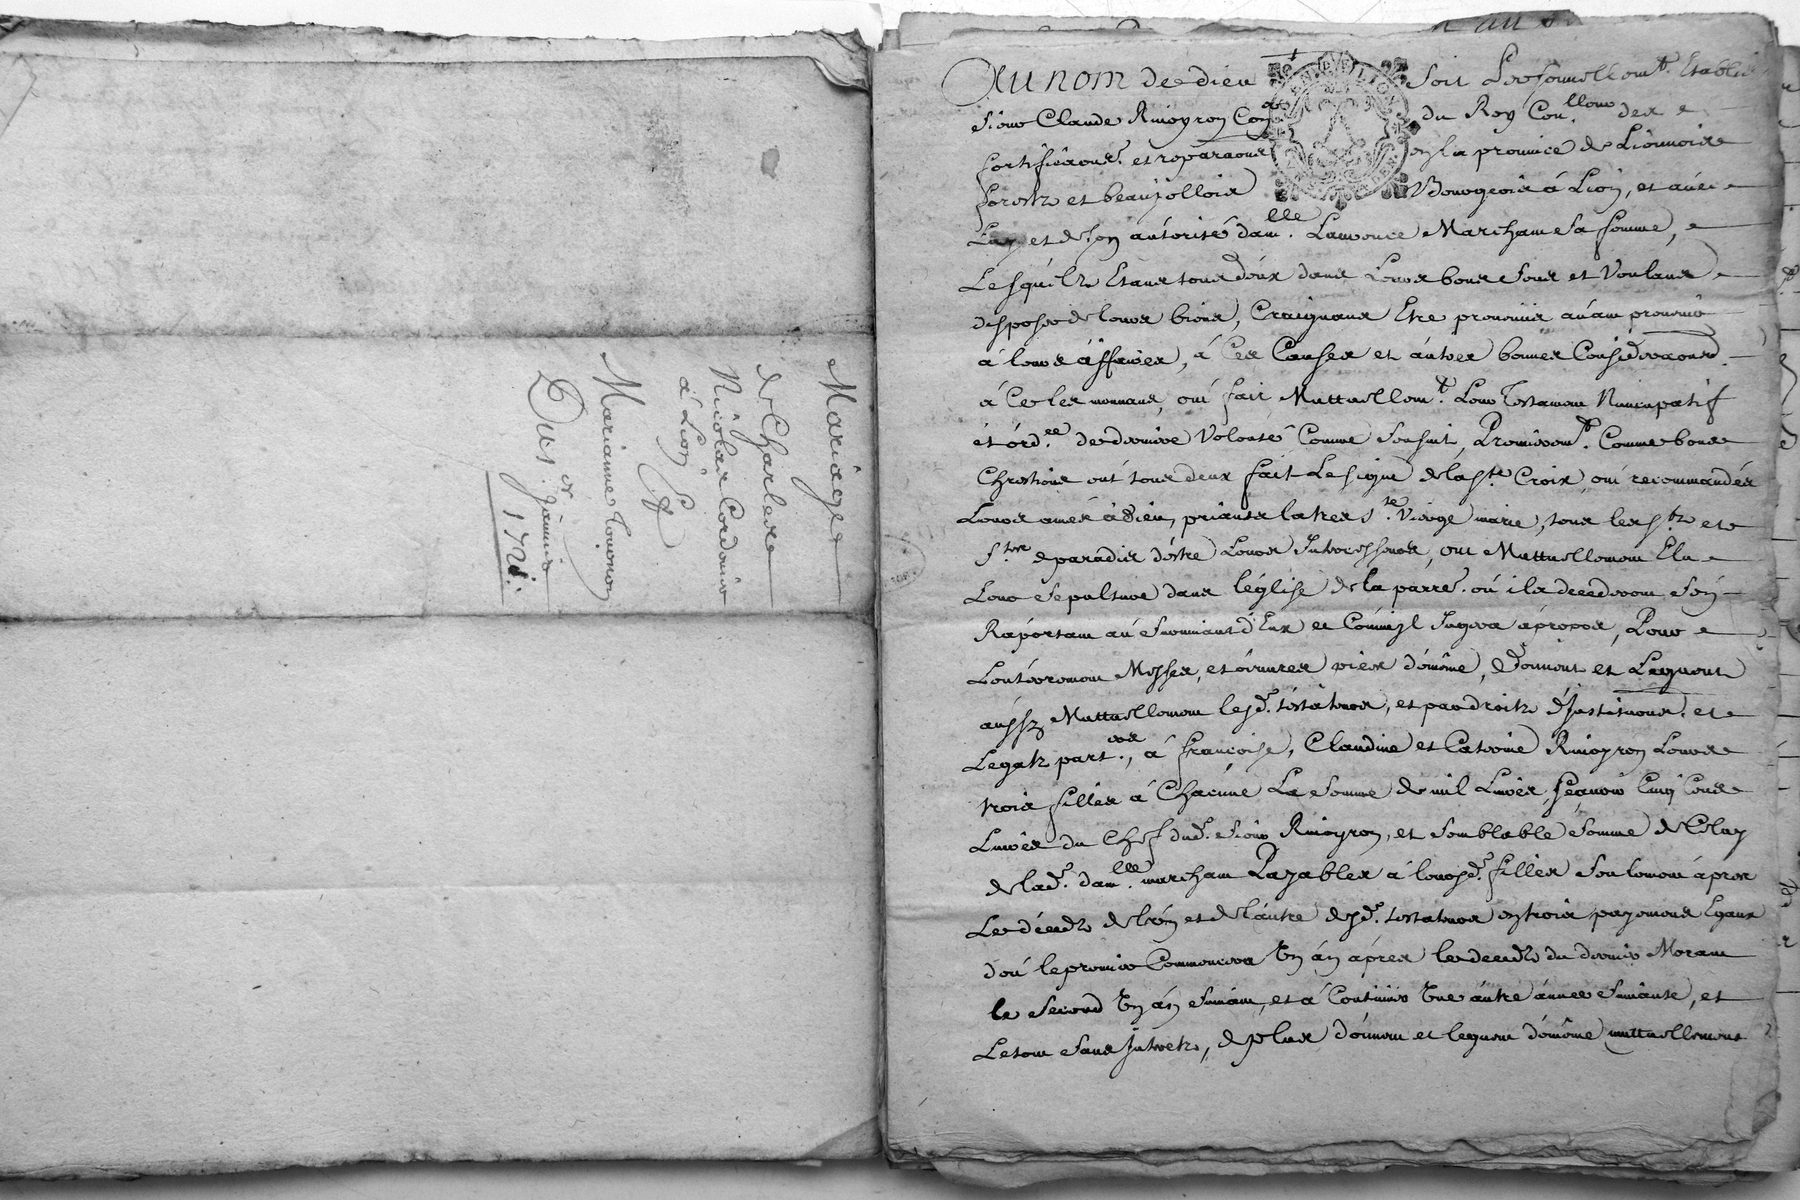 Mariage
de Charles
Nicolas Cordonier
à Lion
Et
Marianne
Du 8e Janvier
172
Au nom de dieu soit Personnellemt. Establis
sieur Claude Rivoyron Coner du Roy Con.lleur des
fortificaons. et reparaons en la province de Lionnois
forestz et beaujollois Bourgeois à Lion, et avec
Luy et de son authorité dam.lle Laurence Marchant Sa femme,
Lesquelz Etans tous deux dans Leurs bons sens et Voulans
disposer de leurs biens, Craignans Etre prevenus avant
à leurs affaires, à Ces Causes et autres bonnes Consideraons
à Ce les mouvans, ont fait Muttuellemt. Leur Testament Nuncupatif
et ord.ee de derniere Volonté Comme sensuit, Premieremt. Comme bons
Chrestiens ont tous deux fait Le signe de la ste. Croix, ont recommandés
Leurs ames à dieu, priants la tres ste. Vierge marie, tous les stz et
stes de paradis d'estre Leurs Intercesseurs, ont Muttuellement Elu
Leur Sepulture dans l'église de la parre. où ils decederont s'en
Raportant au survivant d'Eux et Comme Il Jugera à propos, Pour
Messes, et œuvres pies de même, donnent et Leguent
aussy Muttuellement lesd. testateurs, et par droitz d'Institution et
Legatz part.ers, à françoise, Claudine et Caterine Rivoyron Leurs
trois filles à Chacune La Somme de mil Livres, sçavoir Cinq Cens
Livres du Chef dud. sieur Rivoyron, et semblable Somme de Celuy
de lad. dam.lle marchant Payables à leursd. filles seulement après
Le décedz de l'un et de l'autre desd. testateurs en trois payemens Egaux
dont le premier Commencera Un an après le decedz du dernier Morant
le second Un an suivant, et à Continuer Une autre année suivante, et
Le tout sans Interetz, de plus donnent et leguent de même muttuellement